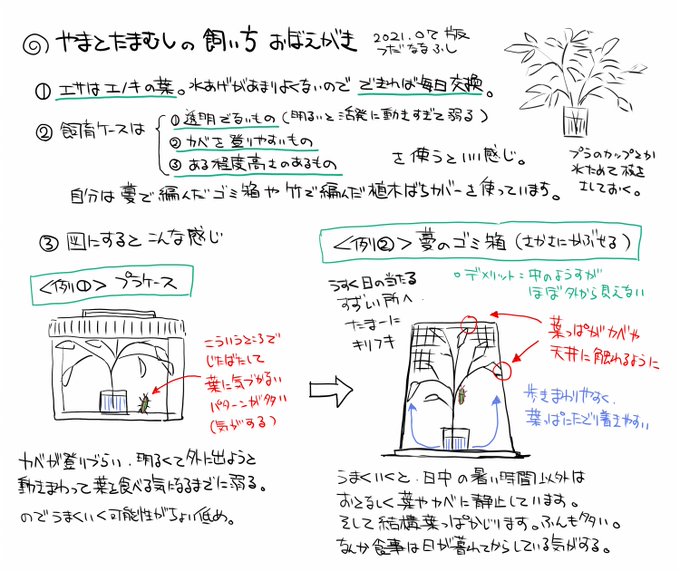 ◎ やまとたまむしの飼いち おぼえがき 2021.07版
つだななふし
① エサはエノキの葉。水あげがあまりよくないので できれば毎日交換。
② 飼育ケースは
①透明でないもの(明るいと活発に動きすぎて弱る)
②カベを登りやすいもの
③ある程度高さのあるもの
を使うといい感じ。
自分は蔓で編んだゴミ箱や竹で編んだ植木ばちカバーを使っています。
プラのカップとか
水ためて枝を
さしておく。
③ 図にするとこんな感じ
<例①> プラケース
こういうところで
じたばたして
葉に気づかない
パターンが多い
(気がする)
カベが登りづらい、明るくて外に出ようと
動きまわって葉を食べる気になるまでに弱る。
のでうまくいく可能性がちょい低め。
<例②> 蔓のゴミ箱(さかさにかぶせる)
○デメリット:中のようすが
ほぼ外から見えない
うすく日の当たる
すずしい所へ
たまーに
キリフキ
葉っぱがカベや
天井に触れるように
歩きまわりやすく、
葉っぱにたどり着きやすい
うまくいくと、日中の暑い時間以外は
おとなしく葉やカベに静止しています。
そして結構葉っぱかじります。ふんも多い。
なんか食事は日が暮れてからしている気がする。